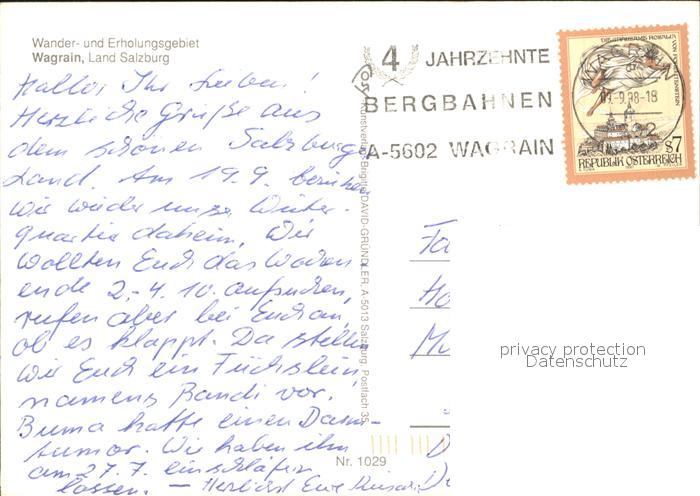 Wander- und Erholungsgebiet
Wagrain, Land Salzburg
Hallo Ihr Lieben!
Herzliche Grüße aus
dem schönen Salzburger
Land. Am 19.9. beziehen
wir wieder unser Winter-
quartier daheim. Wir
wollten Euch das Wochen
ende 2.-4.10. aufsuchen,
rufen aber bei Euch an,
ob es klappt. Da stellen
wir Euch ein Füchslein
namens Randi vor.
Buma hatte einen Darm-
tumor. Wir haben ihn
am 27.7. einschläfern
lassen. – Herzlichst Eure
4 JAHRZEHNTE
BERGBAHNEN
A-5602 WAGRAIN
WAGRAIN
-9.98-18
REPUBLIK ÖSTERREICH
S7
Kunstverlag Brigitte DAVID-GRÜNDLER, A-5013 Salzburg, Postfach 35
Fa
Ho
Mu
D
Nr. 1029
privacy protection
Datenschutz